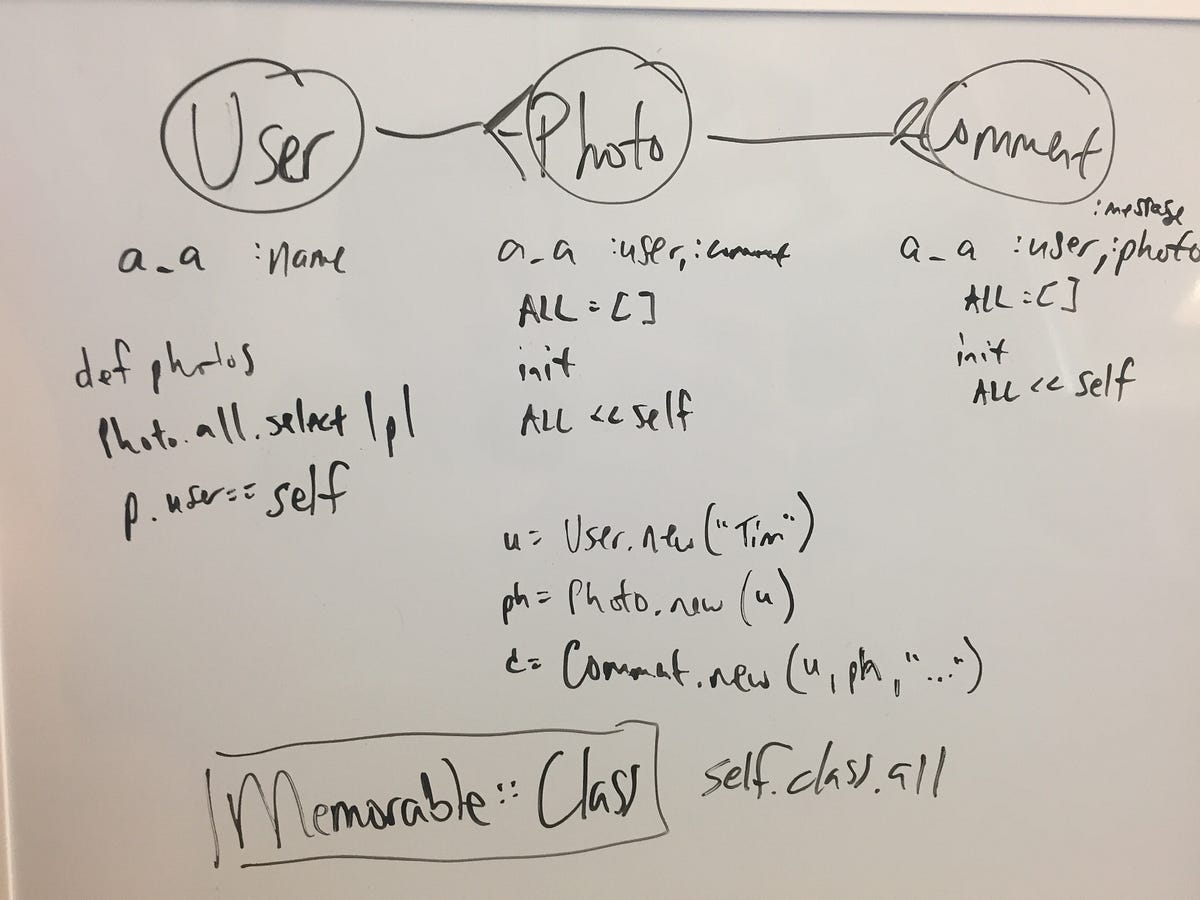 User
Photo
Comment
a_a :name
def photos
Photo.all.select |p|
p.user== self
a_a :user, :comment
ALL = []
init
ALL << self
:message
a_a :user, :photo
ALL = []
init
ALL << self
u= User.new("Tim")
ph= Photo.new(u)
c= Comment.new(u, ph, "...")
Memorable::Class
self.class.all